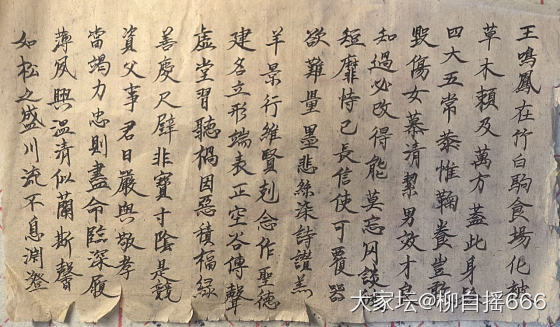 王鳴鳳在竹白駒食場化被
草木賴及萬方蓋此身
四大五常恭惟鞠養豈敢
毀傷女慕清絜男效才良
知過必改得能莫忘罔談彼
短靡恃己長信使可覆器
欲難量墨悲絲染詩讚羔
羊景行維賢剋念作聖德
建名立形端表正空谷傳聲
虛堂習聽禍因惡積福緣
善慶尺璧非寶寸陰是競
資父事君曰嚴與敬孝
當竭力忠則盡命臨深履
薄夙興溫清似蘭斯馨
如松之盛川流不息淵澄
大家坛@柳自摇666